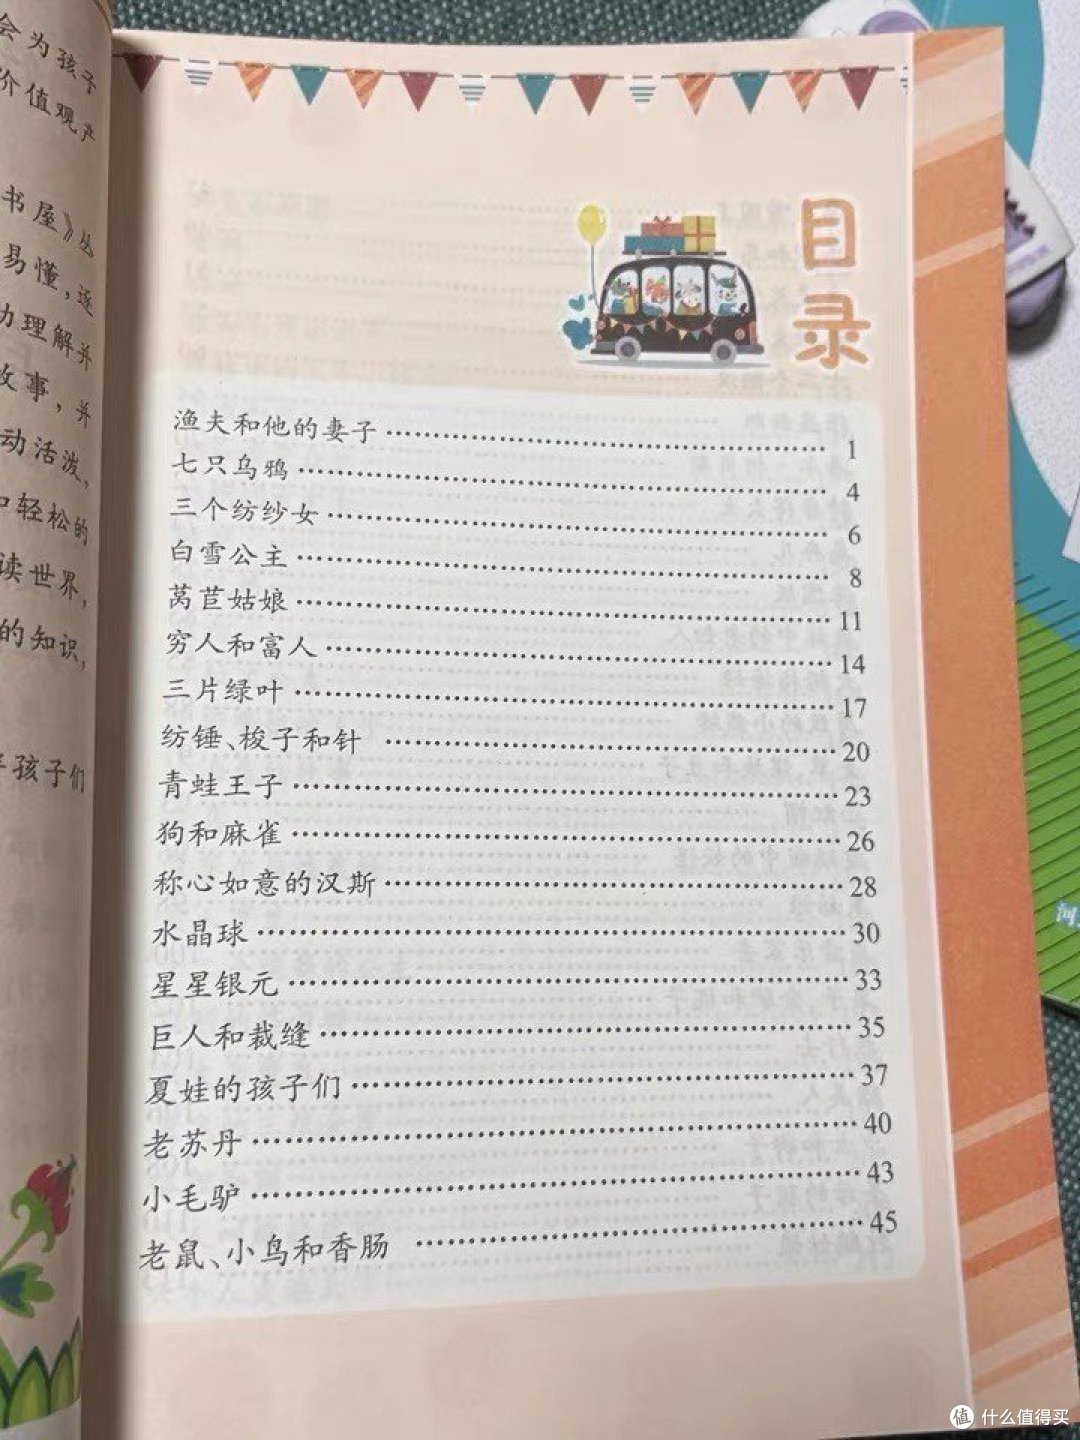 会为孩子
价值观产
书屋》丛
易懂,逐
功理解并
故事,并
动活泼,
和轻松的
读世界,
的知识,
孩子们
目录
渔夫和他的妻子……1
七只乌鸦……4
三个纺纱女……6
白雪公主……8
莴苣姑娘……11
穷人和富人……14
三片绿叶……17
纺锤、梭子和针……20
青蛙王子……23
狗和麻雀……26
称心如意的汉斯……28
水晶球……30
星星银元……33
巨人和裁缝……35
夏娃的孩子们……37
老苏丹……40
小毛驴……43
老鼠、小鸟和香肠……45
值 什么值得买